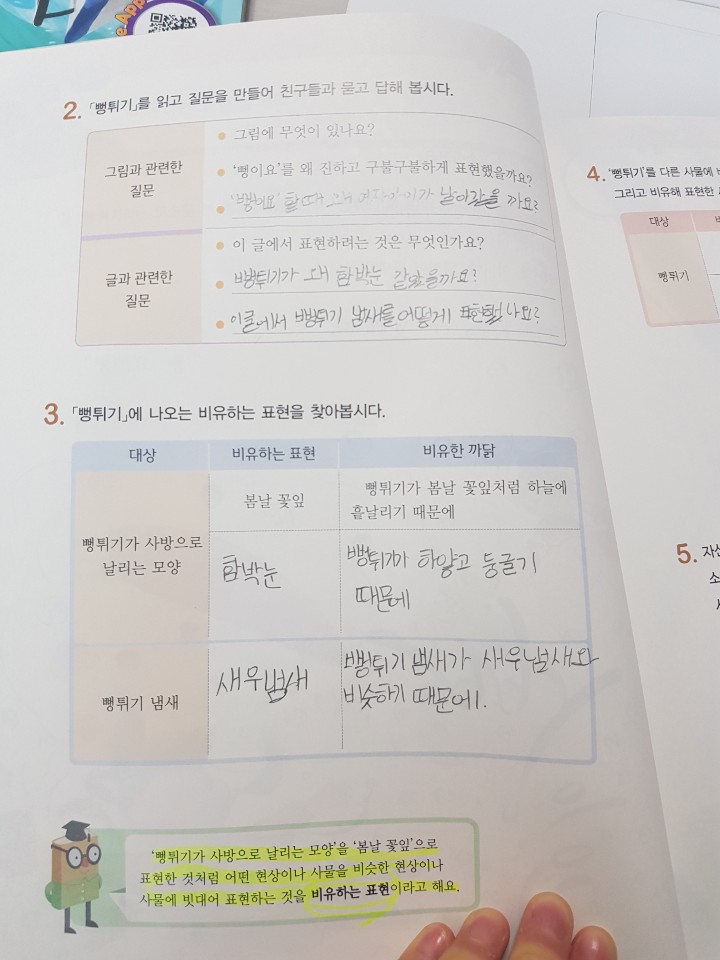 e App
2. 「뻥튀기」를 읽고 질문을 만들어 친구들과 묻고 답해 봅시다.
그림과 관련한
질문
그림에 무엇이 있나요?
'뻥이요'를 왜 진하고 구불구불하게 표현했을까요?
'뻥이요' 할 때 왜 이가 날아갔을 까요?
글과 관련한
질문
이 글에서 표현하려는 것은 무엇인가요?
뻥튀기가 왜 함박눈 같았을까요?
이글에서 뻥튀기 냄새를 어떻게 표현했나요?
3. 「뻥튀기」에 나오는 비유하는 표현을 찾아봅시다.
대상 비유하는 표현 비유한 까닭
뻥튀기가 사방으로
날리는 모양
봄날 꽃잎
뻥튀기가 봄날 꽃잎처럼 하늘에
흩날리기 때문에
함박눈
뻥튀기가 하얗고 둥글기
때문에
뻥튀기 냄새
새우냄새
뻥튀기 냄새가 새우냄새와
비슷하기 때문에.
'뻥튀기가 사방으로 날리는 모양'을 '봄날 꽃잎'으로
표현한 것처럼 어떤 현상이나 사물을 비슷한 현상이나
사물에 빗대어 표현하는 것을 비유하는 표현이라고 해요.
4. '뻥튀기'를 다른 사물에
그리고 비유해 표현한
대상
뻥튀기
5.